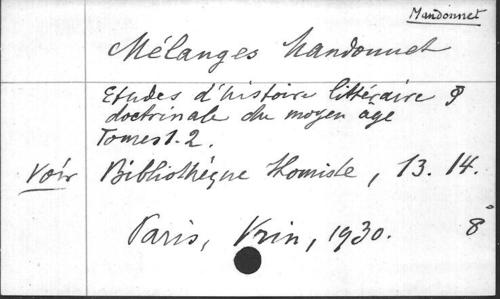 Mandonnet
Mélanges Mandonnet
Etudes d'histoire littéraire &
doctrinale du moyen age
Tomes 1-2.
Voir Bibliothèque thomiste, 13. 14.
Paris, Vrin, 1930. 8°